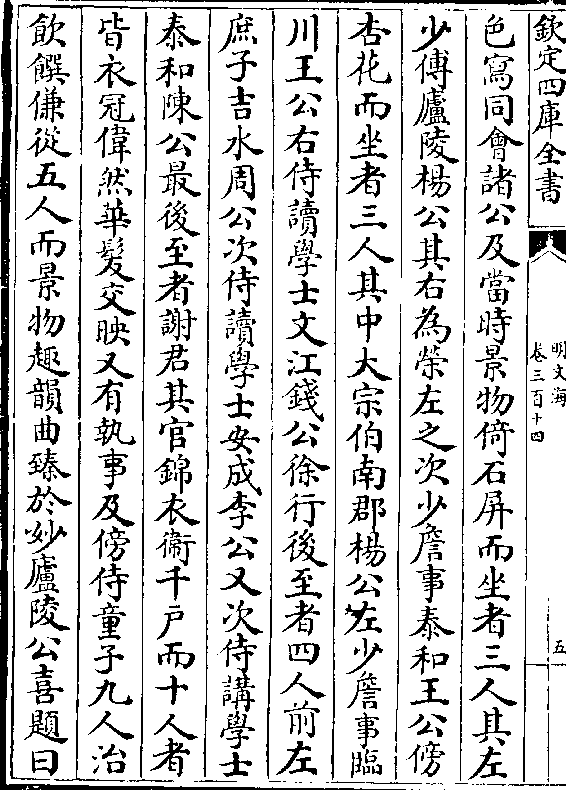 欽定四庫全書
明文海
卷三百十四
五
色寫同會諸公及當時景物倚石屏而坐者三人其左
少傅廬陵楊公其右為榮左之次少詹事泰和王公傍
杏花而坐者三人其中大宗伯南郡楊公左少詹事臨
川王公右侍讀學士文江錢公徐行後至者四人前左
庶子吉水周公次侍讀學士安成李公又次侍講學士
泰和陳公最後至者謝君其官錦衣衛千戶而十人者
皆衣冠偉然華髮交映又有執事及傍侍童子九人治
飲饌傔從五人而景物趣韻曲臻於妙廬陵公喜題曰